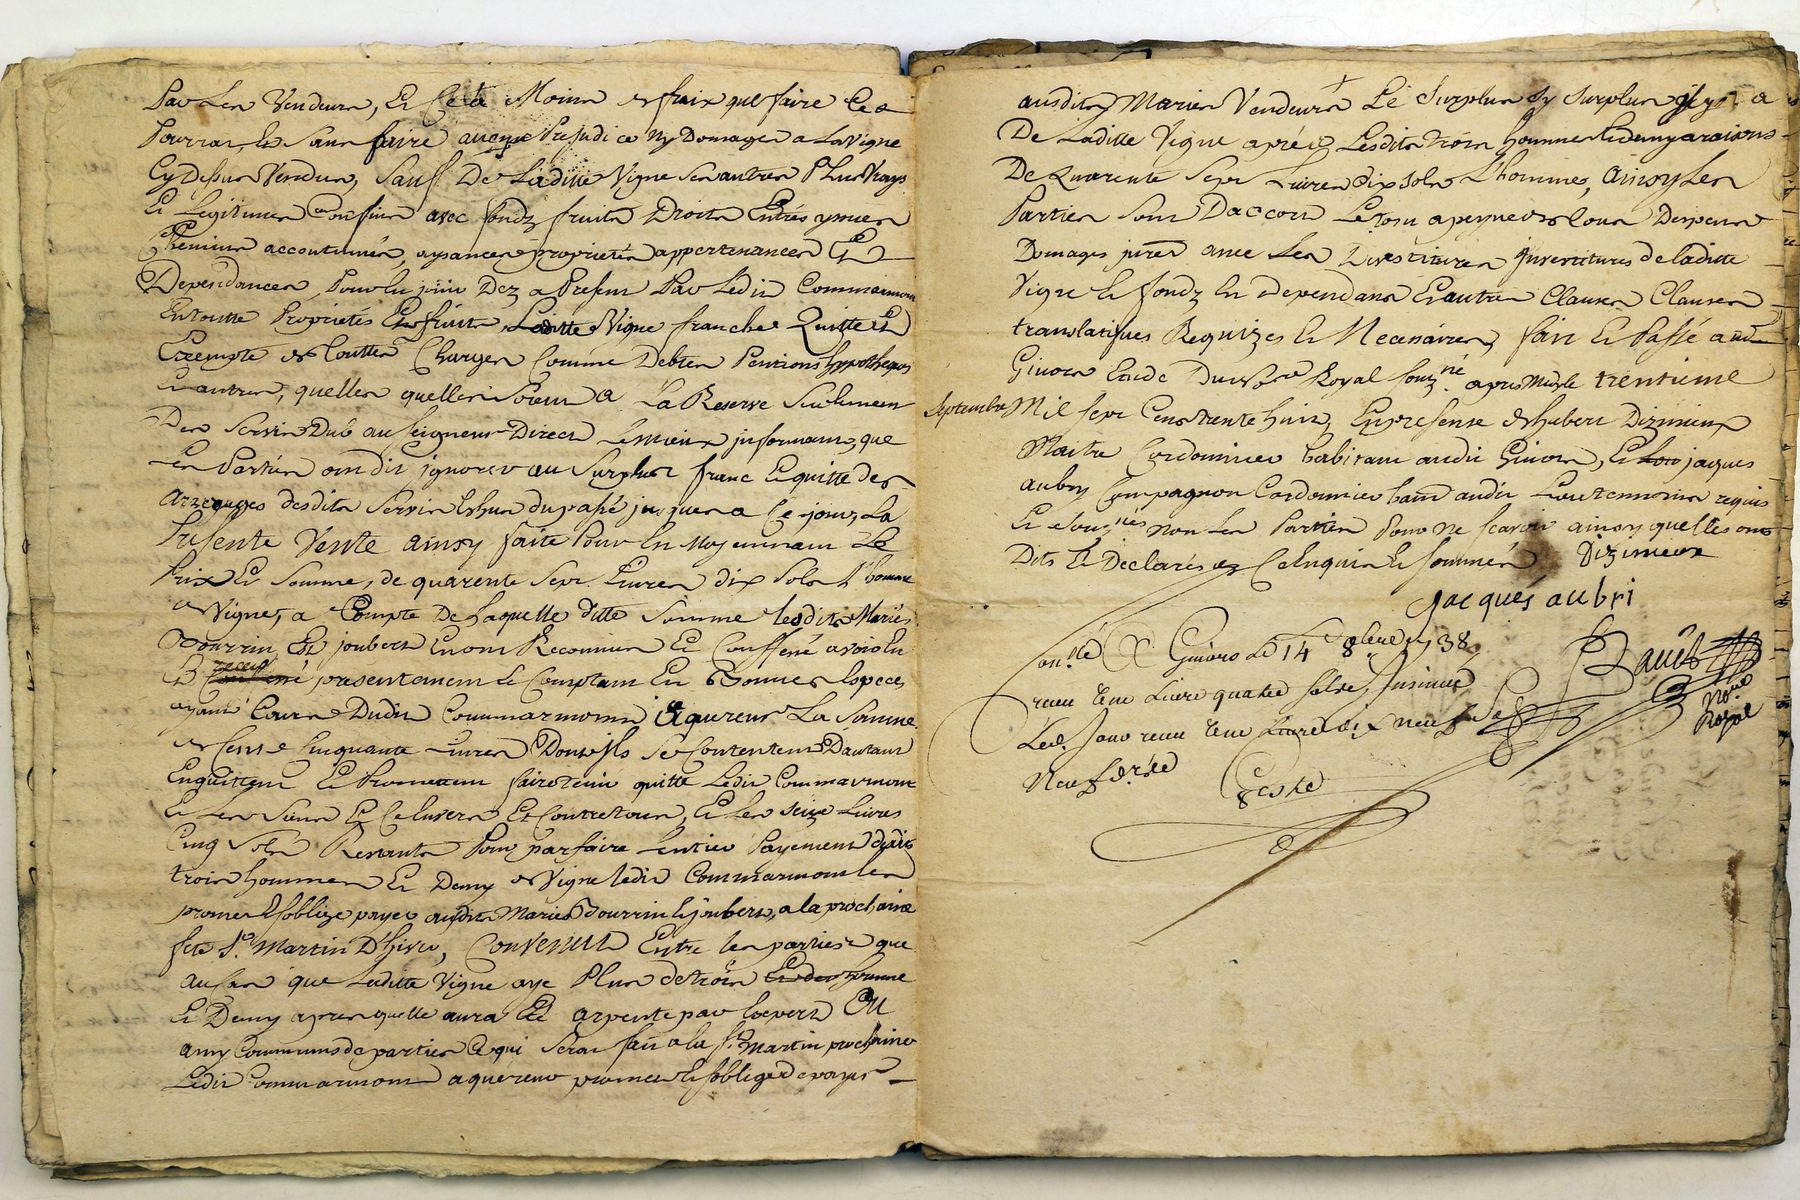 Par les Vendeurs, Et Ce a Moins de fraix que faire Ce
Pourra, Et Sans faire aucune Prejudice Ny Domages a La Vigne
Cy Dessus Vendue, Sauf De Laditte Vigne Ses autres Plus Vrays
Et Legitimes Confins avec fondz fruits Droits Entrés yssues
Chemins accoutumés, aysances proprietés appertenances Et
Dependances, Pour en jouir Dez a Present Par Ledit Commarmom
En toutte Proprietés Et fruits, Laditte Vigne franche Quitte Et
Exempte de touttes Charges Comme Debtes Pentions hypotheques
Et autres, quelles quelles Soient a La Reserve Seulement
Des Servis Dub au Seigneur Direct Le mieux informant, que
Les Parties ont dit ignorer au Surplus franc Et quitte des
arrerages desdits Servis Echus du passé jusques a Ce jour, La
Presente Vente ainsy faite Pour Et Moyennant Le
Prix Et Somme, de quarente Sept Livres dix Sols L'homme
de Vigne, a Compte De Laquelle ditte Somme lesdits Mariés
Bourrin Et joubert En ont Reconnus Et Confessé avoir Eu
Et receu presentement Et Comptant En Bonnes Especes
ayant Cours Dudit Commarmom aquereur La Somme
de Cent Cinquante Livres Dont ils Se Contentent D'autant
Enquittent Et Promettent faire tenir quitte Ledit Commarmom
Et Les Siens Et Ce Envers Et Contre tous, Et Les Seize Livres
Cinq Sols Restants Pour parfaire L'entier Payement desdits
trois hommes Et Demy de Vigne ledit Commarmom les
promet Et S'oblige payer ausdits Mariés Bourrin Et joubert, a la prochaine
fete St Martin D'hiver, Convenu Entre les parties que
au Cas que Laditte Vigne aye Plus de trois hommes
Et Demy apres quelle aura Eté arpenté par Expert Ou
amy Communs de parties Ce qui Sera fait a la St Martin prochaine
Ledit Commarmom aquereur promet Et S'oblige de payer
ausdits Mariés Vendeurs Le Surplus Sy Surplus il y a
De Laditte Vigne aprés Lesdits trois hommes Et demy a raison
De Quarente Sept Livres Dix Sols L'homme, Ainsy Les
Parties Sont D'accord Le tout a peyne de tous Despens
Domages jntrets avec Les Devestitures jnvestitures de laditte
Vigne Et fondz En dependans Et autres Clauses Clauses
translatifves Requizes Et Necessaires, fait Et Passé audit
Givors Etude Du Nore Royal Souzné apres Midy le trentieme
Septembre Mil Sept Cens trente huit, En presense de hubert Dizimieux
Maitre Cordonnier habitant audit Givors, Et jaques
aubry Compagnon Cordonnier habt audit Lieu temoins requis
Et Souznés non Les Parties Pour ne Scavoir ainsy quelles ont
Dits Et Declarés de Ce Enquis Et Sommés Dizimieux
Jacques aubri
Conlé A Givors Le 14 8bre 1738
receu une Livre quatre Sols, Jnsinué
Led. Jour receu une Livre dix neuf Sols
Neuf d.
Coste
Nore
Royal